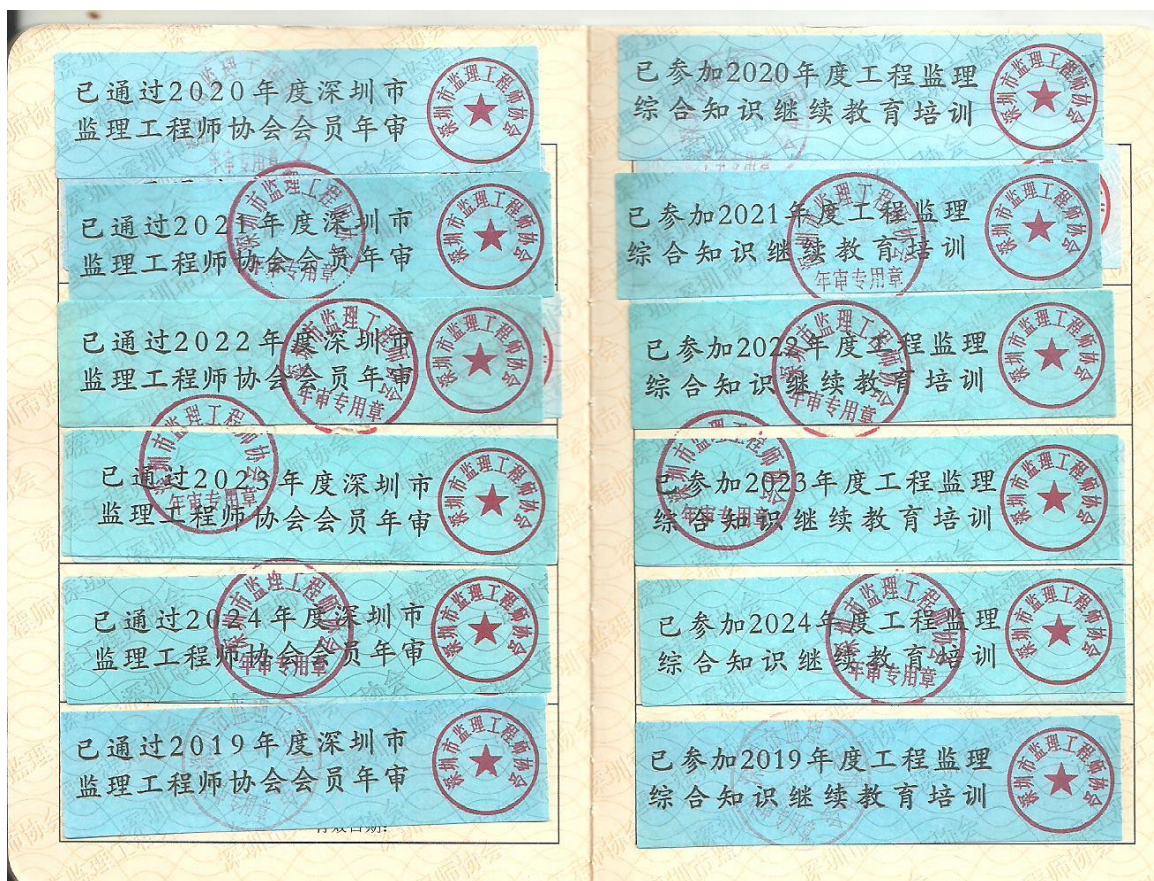 已通过2020年度深圳市
监理工程师协会会员年审
深圳市监理工程师协会
年审专用章
已通过2021年度深圳市
监理工程师协会会员年审
深圳市监理工程师协会
深圳市监理工程师协会
年审专用章
已通过2022年度深圳市
监理工程师协会会员年审
深圳市监理工程师协会
深圳市监理工程师协会
年审专用章
已通过2023年度深圳市
监理工程师协会会员年审
深圳市监理工程师协会
深圳市监理工程师协会
年审专用章
已通过2024年度深圳市
监理工程师协会会员年审
深圳市监理工程师协会
深圳市监理工程师协会
年审专用章
已通过2019年度深圳市
监理工程师协会会员年审
深圳市监理工程师协会
有效日期：
已参加2020年度工程监理
综合知识继续教育培训
深圳市监理工程师协会
已参加2021年度工程监理
综合知识继续教育培训
深圳市监理工程师协会
深圳市监理工程师协会
年审专用章
已参加2022年度工程监理
综合知识继续教育培训
深圳市监理工程师协会
深圳市监理工程师协会
年审专用章
已参加2023年度工程监理
综合知识继续教育培训
深圳市监理工程师协会
深圳市监理工程师协会
年审专用章
已参加2024年度工程监理
综合知识继续教育培训
深圳市监理工程师协会
深圳市监理工程师协会
年审专用章
已参加2019年度工程监理
综合知识继续教育培训
深圳市监理工程师协会